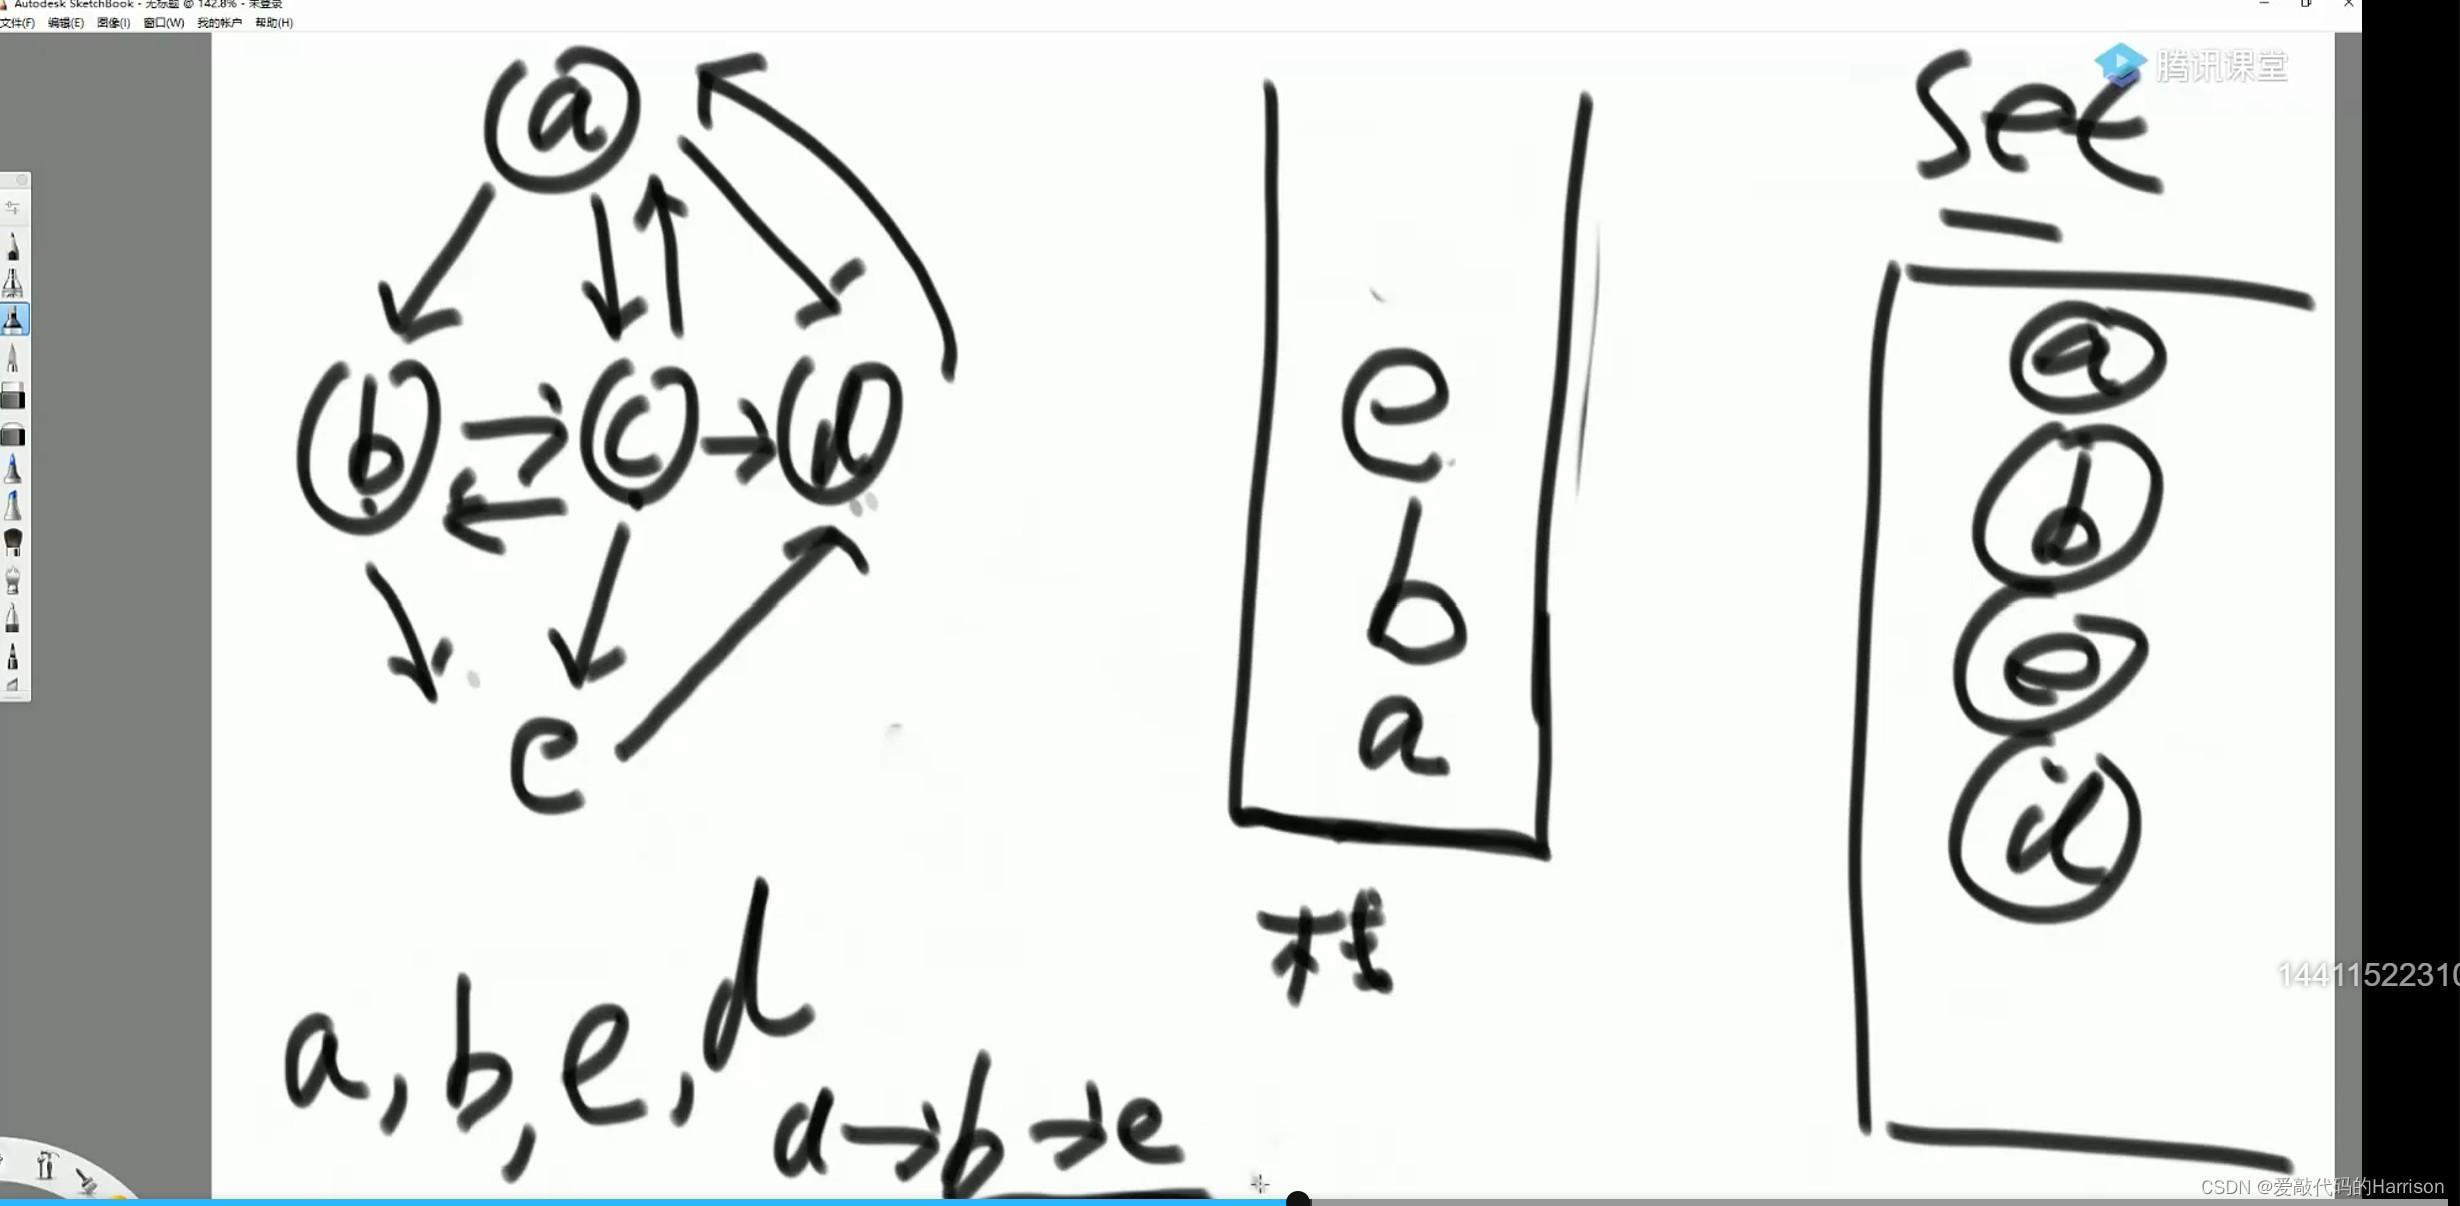 Autodesk SketchBook - 无标题 @ 142.8% - 未登录
文件(F) 编辑(E) 图像(I) 窗口(W) 我的帐户 帮助(H)
腾讯课堂
set
a
b c d
e
e
b
a
栈
a
b
e
d
a, b, e, d
a→b→e
14411522310
CSDN @爱敲代码的Harrison